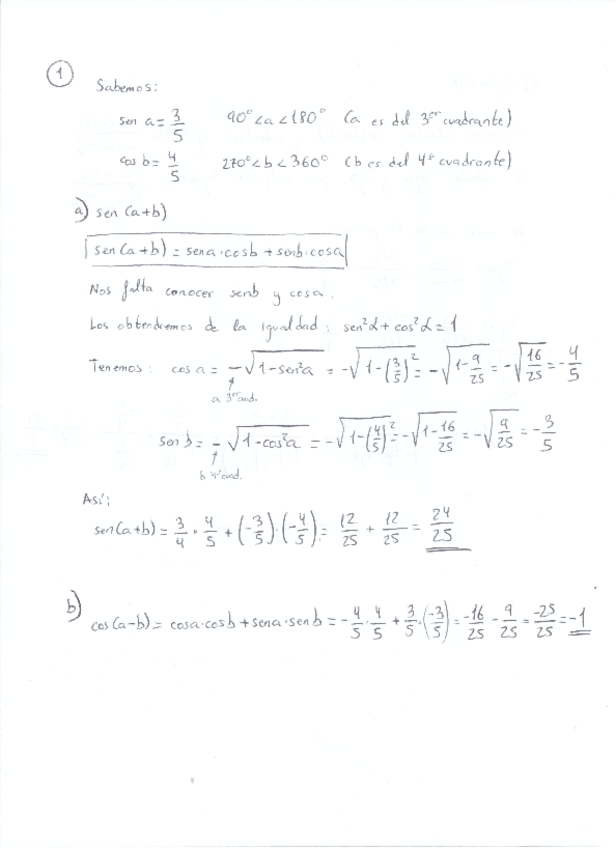 1
Sabemos:
sen a = 3/5 90° < a < 180° (a es del 3er cuadrante)
cos b = 4/5 270° < b < 360° (b es del 4º cuadrante)
a) sen (a+b)
sen (a+b) = sena · cosb + senb · cosa
Nos falta conocer senb y cosa.
Los obtendremos de la igualdad: sen²α + cos²α = 1
Tenemos: cos a = -√(1-sen²a) = -√(1-(3/5)²) = -√(1-9/25) = -√(16/25) = -4/5
a 3er cuad.
sen b = -√(1-cos²a) = -√(1-(4/5)²) = -√(1-16/25) = -√(9/25) = -3/5
b 4º cuad.
Así:
sen(a+b) = 3/4 · 4/5 + (-3/5) · (-4/5) = 12/25 + 12/25 = 24/25
b) cos(a-b) = cosa · cosb + sena · sen b = -4/5 · 4/5 + 3/5 · (-3/5) = -16/25 - 9/25 = -25/25 = -1